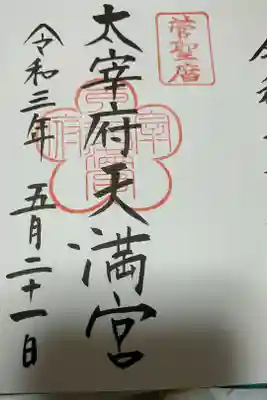 菅聖廟
太宰府天満宮
令和三年 五月二十一日